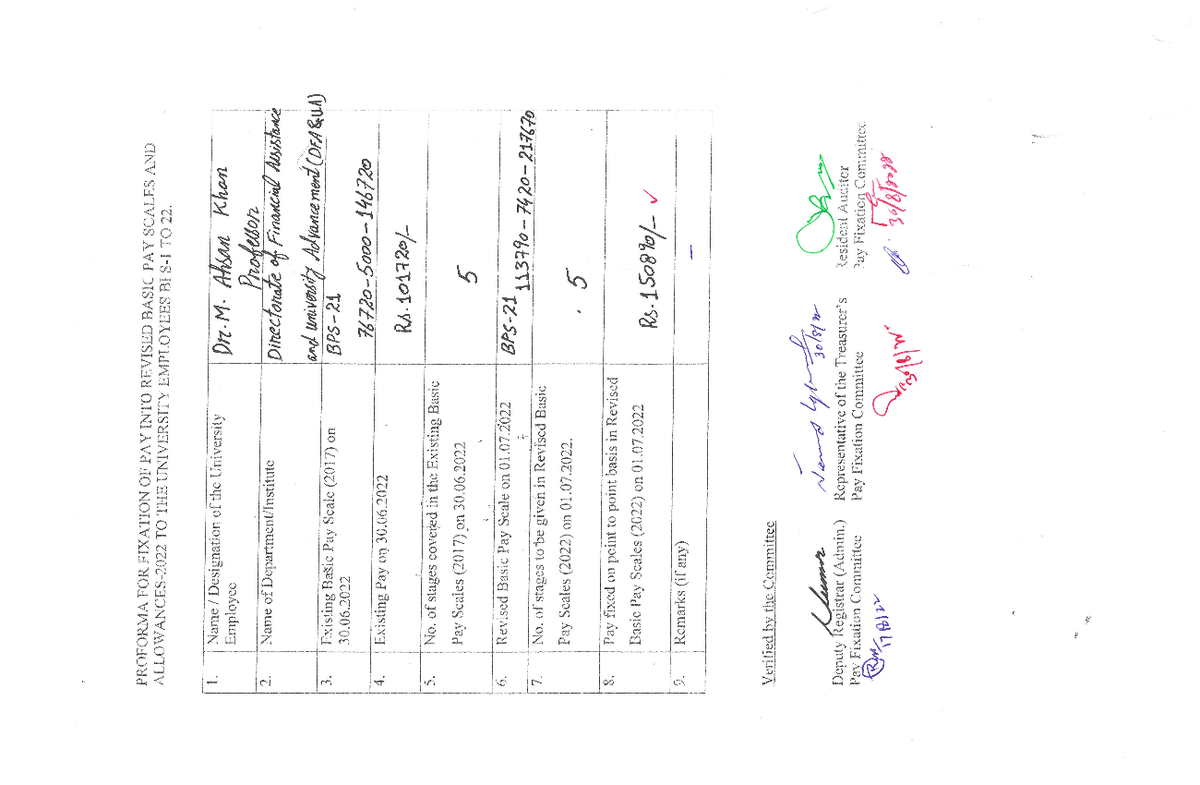 PROFORMA FOR FIXATION OF PAY INTO REVISED BASIC PAY SCALES AND
ALLOWANCES-2022 TO THE UNIVERSITY EMPLOYEES BPS-1 TO 22.
1. Name / Designation of the University Dr. M. Ahsan Khan
Employee Professor
2. Name of Department/Institute Directorate of Financial Assistance
and university Advancement (DFA&UA)
3. Existing Basic Pay Scale (2017) on BPS-21
30.06.2022 76720-5000-146720
4. Existing Pay on 30.06.2022 Rs. 101720/-
5. No. of stages covered in the Existing Basic
Pay Scales (2017) on 30.06.2022 5
6. Revised Basic Pay Scale on 01.07.2022 BPS-21 113790-7420-217670
7. No. of stages to be given in Revised Basic
Pay Scales (2022) on 01.07.2022. 5
8. Pay fixed on point to point basis in Revised
Basic Pay Scales (2022) on 01.07.2022 Rs. 150890/-
9. Remarks (if any) —
Verified by the Committee
30/8/22
Deputy Registrar (Admin.) Representative of the Treasurer's Resident Auditor
Pay Fixation Committee Pay Fixation Committee Pay Fixation Committee
17/8/22 30/8/2022